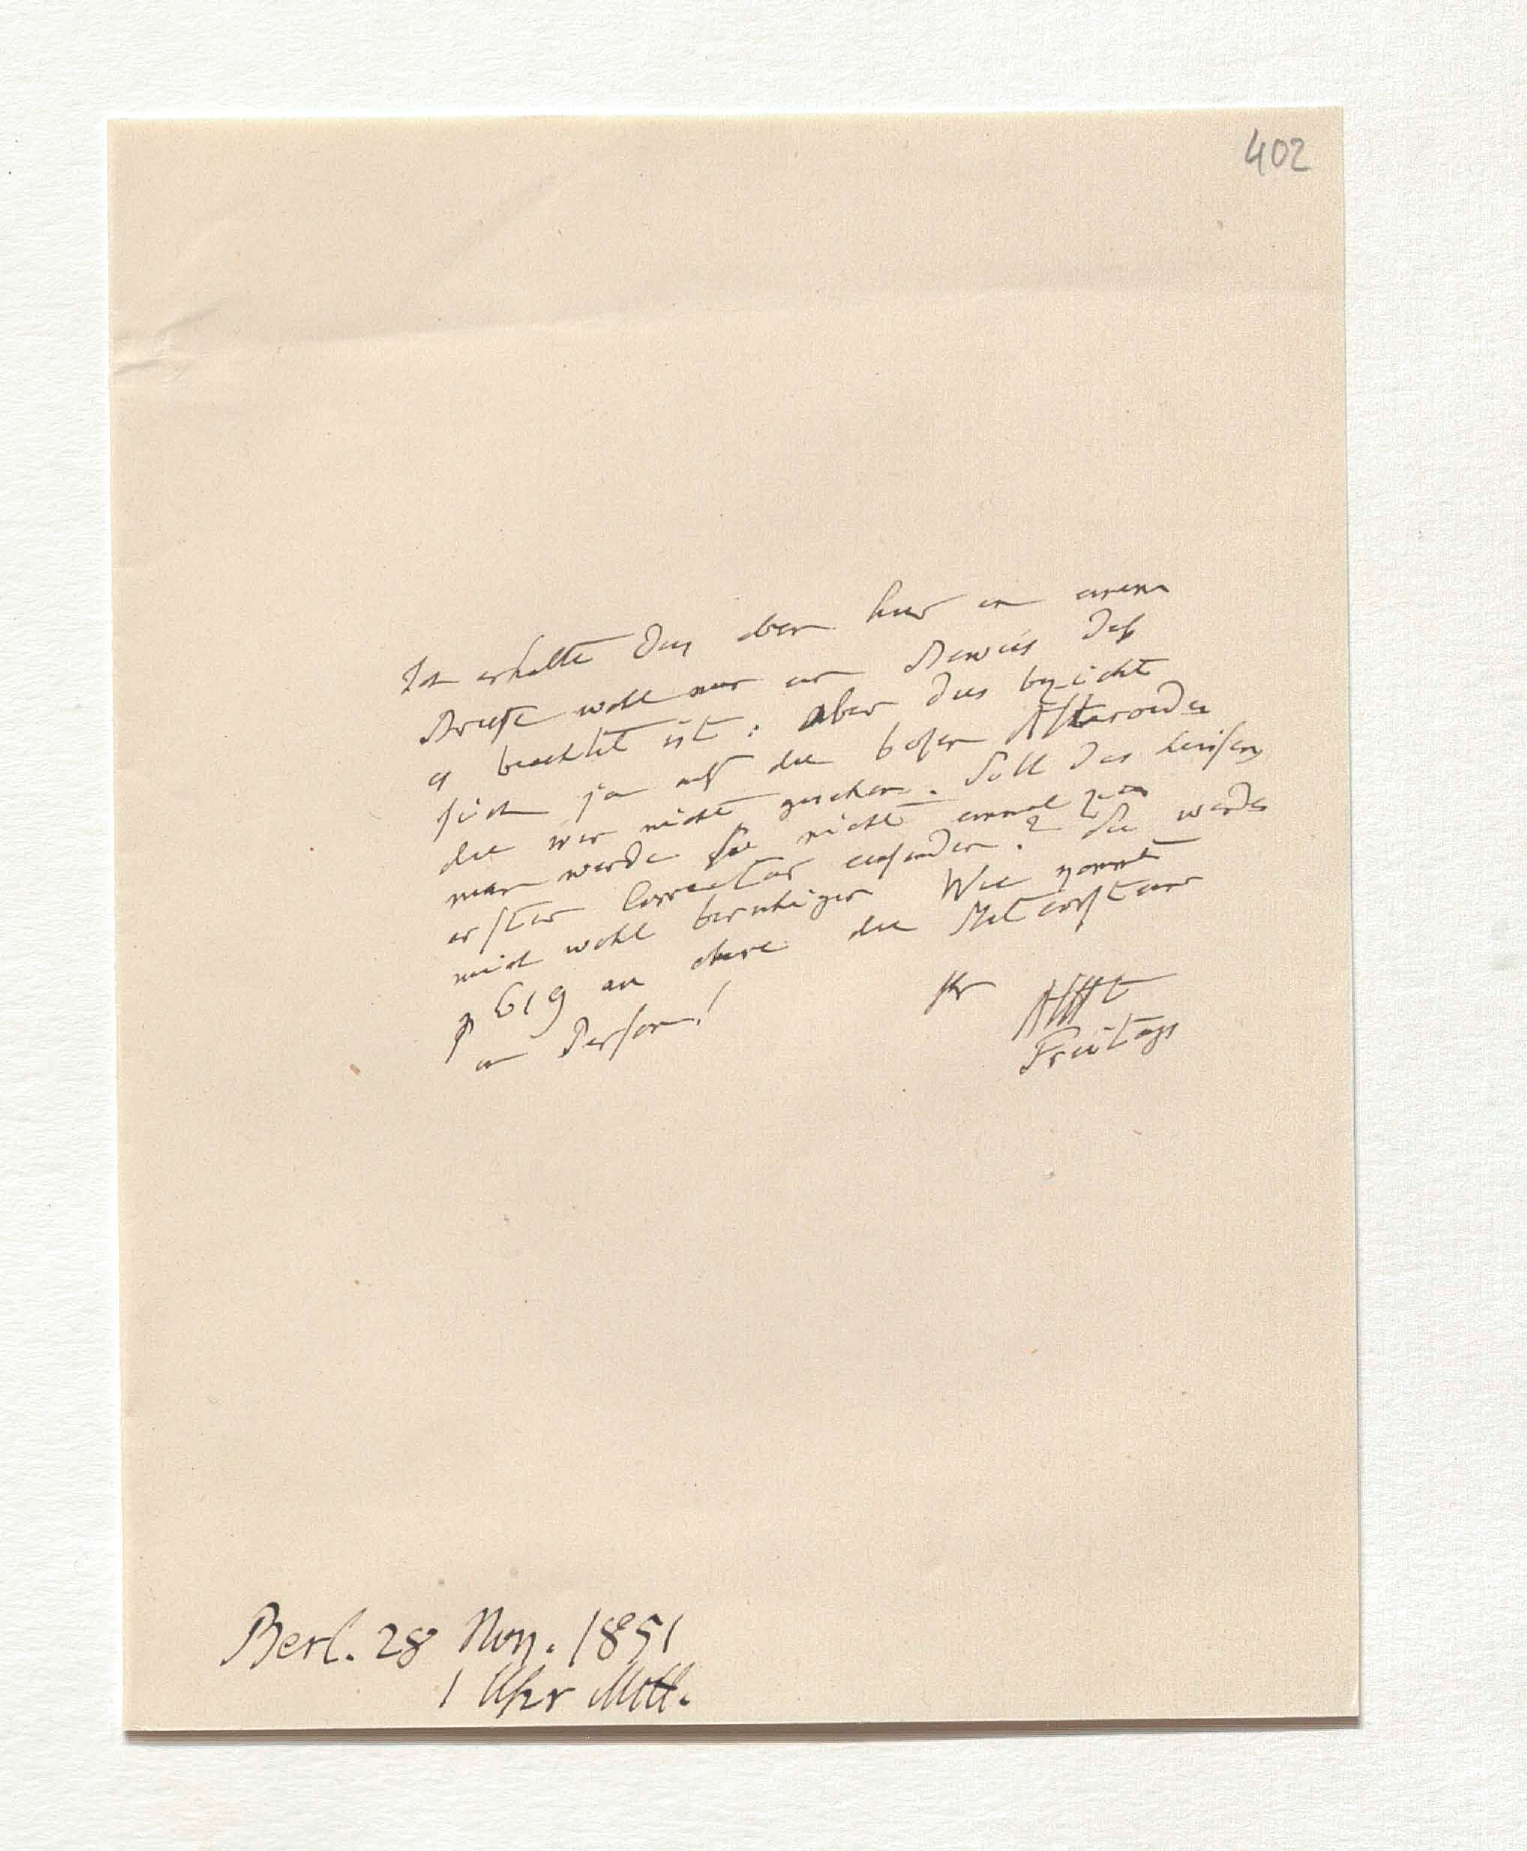 402
Ich erhalte dies eben hier in einem
Briefe wohl nur ein Beweis daß
es bezahlt ist: aber dies bezieht
sich ja auf die bösen Asteroiden
die wir nicht gesehen. Soll das heißen
man werde Sie nicht einmal zur
erster Correctur einsenden? Sie werden
mich wohl beruhigen Wie nennt
p 619 an die Meteorsteine
in Person!
Ihr AHt
Freitags
Berl. 28 Nov. 1851
1 Uhr Mitt.